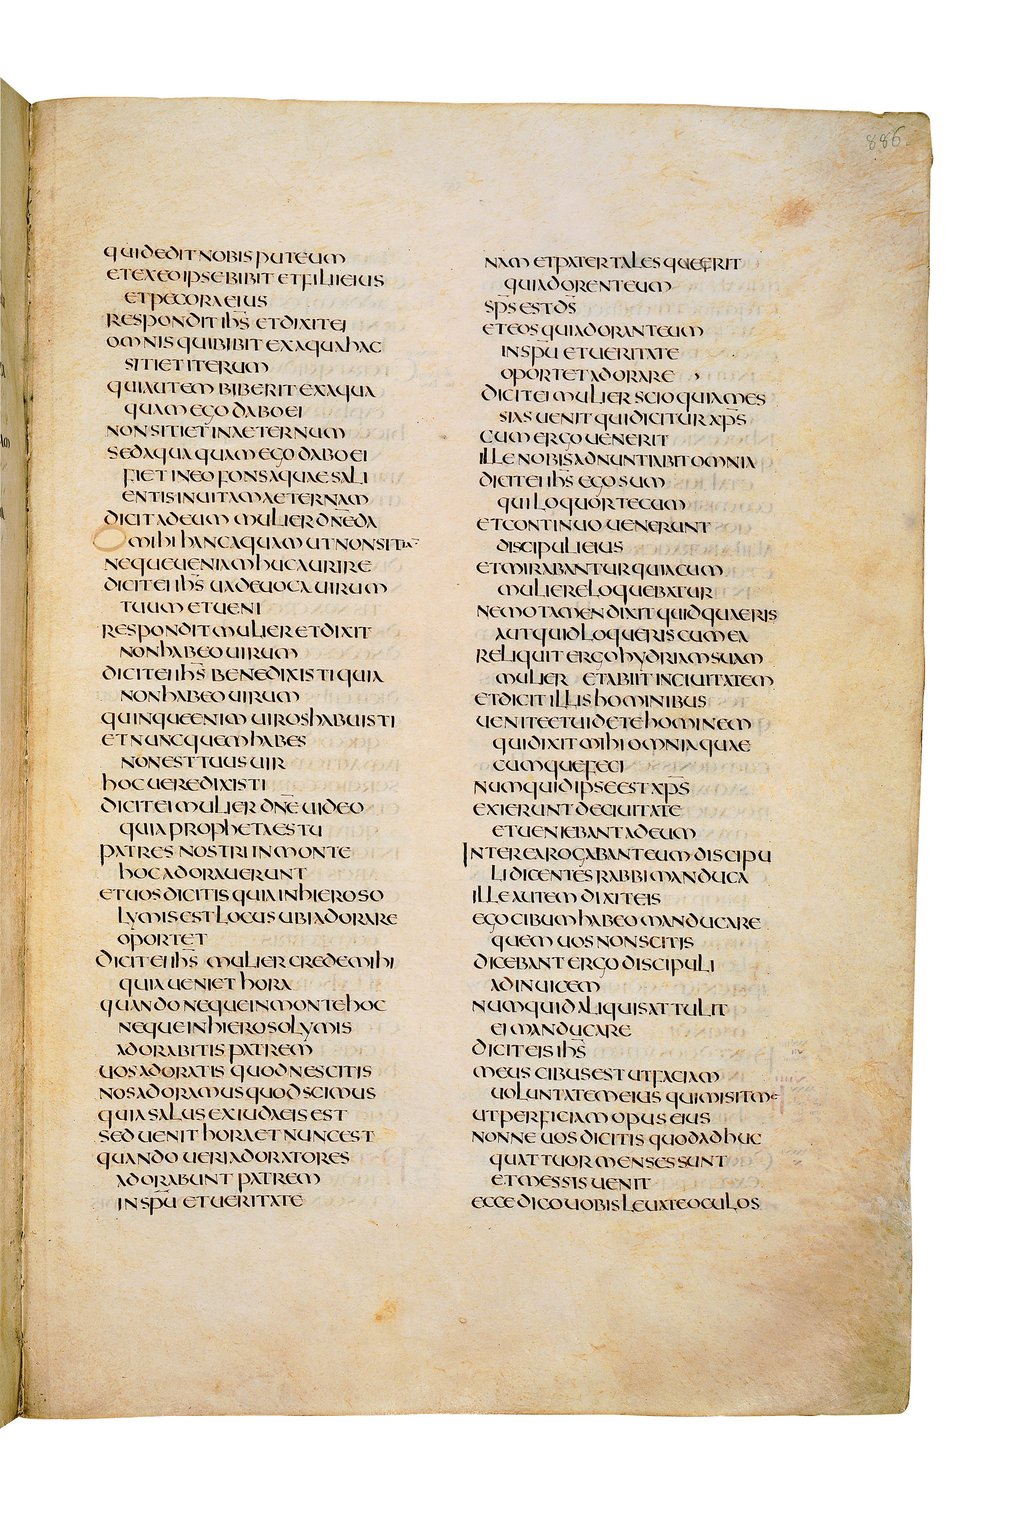 886
QUIDEDIT NOBIS PUTEUM
ET EX EO IPSE BIBIT ET FILII EIUS
ET PECORA EIUS
RESPONDIT IHS̄ ET DIXIT EI
OMNIS QUI BIBIT EX AQUA HAC
SITIET ITERUM
QUI AUTEM BIBERIT EX AQUA
QUAM EGO DABO EI
NON SITIET IN AETERNUM
SED AQUA QUAM EGO DABO EI
FIET IN EO FONS AQUAE SALI
ENTIS IN UITAM AETERNAM
DICIT AD EUM MULIER DN̄E DA
MIHI HANC AQUAM UT NON SITIĀ
NEQUE UENIAM HUC AURIRE
DICIT EI IHS̄ UADE UOCA UIRUM
TUUM ET UENI
RESPONDIT MULIER ET DIXIT
NON HABEO UIRUM
DICIT EI IHS̄ BENE DIXISTI QUIA
NON HABEO UIRUM
QUINQUE ENIM UIROS HABUISTI
ET NUNC QUEM HABES
NON EST TUUS UIR
HOC UERE DIXISTI
DICIT EI MULIER DN̄E UIDEO
QUIA PROPHETA ES TU
PATRES NOSTRI IN MONTE
HOC ADORAUERUNT
ET UOS DICITIS QUIA IN HIEROSO
LYMIS EST LOCUS UBI ADORARE
OPORTET
DICIT EI IHS̄ MULIER CREDE MIHI
QUIA UENIET HORA
QUANDO NEQUE IN MONTE HOC
NEQUE IN HIEROSOLYMIS
ADORABITIS PATREM
UOS ADORATIS QUOD NESCITIS
NOS ADORAMUS QUOD SCIMUS
QUIA SALUS EX IUDAEIS EST
SED UENIT HORA ET NUNC EST
QUANDO UERI ADORATORES
ADORABUNT PATREM
IN SPŪ ET UERITATE
NAM ET PATER TALES QUAERIT
QUI ADORENT EUM
SP̄S EST D̄S
ET EOS QUI ADORANT EUM
IN SPŪ ET UERITATE
OPORTET ADORARE
DICIT EI MULIER SCIO QUIA MES
SIAS UENIT QUI DICITUR XP̄S
CUM ERGO UENERIT
ILLE NOBIS ADNUNTIABIT OMNIA
DICIT EI IHS̄ EGO SUM
QUI LOQUOR TECUM
ET CONTINUO UENERUNT
DISCIPULI EIUS
ET MIRABANTUR QUIA CUM
MULIERE LOQUEBATUR
NEMO TAMEN DIXIT QUID QUAERIS
AUT QUID LOQUERIS CUM EA
RELIQUIT ERGO HYDRIAM SUAM
MULIER ET ABIIT IN CIUITATEM
ET DICIT ILLIS HOMINIBUS
UENITE ET UIDETE HOMINEM
QUI DIXIT MIHI OMNIA QUAE
CUMQUE FECI
NUMQUID IPSE EST XP̄S
EXIERUNT DE CIUITATE
ET UENIEBANT AD EUM
INTEREA ROGABANT EUM DISCIPU
LI DICENTES RABBI MANDUCA
ILLE AUTEM DIXIT EIS
EGO CIBUM HABEO MANDUCARE
QUEM UOS NON SCITIS
DICEBANT ERGO DISCIPULI
AD INUICEM
NUMQUID ALIQUIS ATTULIT
EI MANDUCARE
DICIT EIS IHS̄
MEUS CIBUS EST UT FACIAM
UOLUNTATEM EIUS QUI MISIT ME
UT PERFICIAM OPUS EIUS
NONNE UOS DICITIS QUOD ADHUC
QUATTUOR MENSES SUNT
ET MESSIS UENIT
ECCE DICO UOBIS LEUATE OCULOS